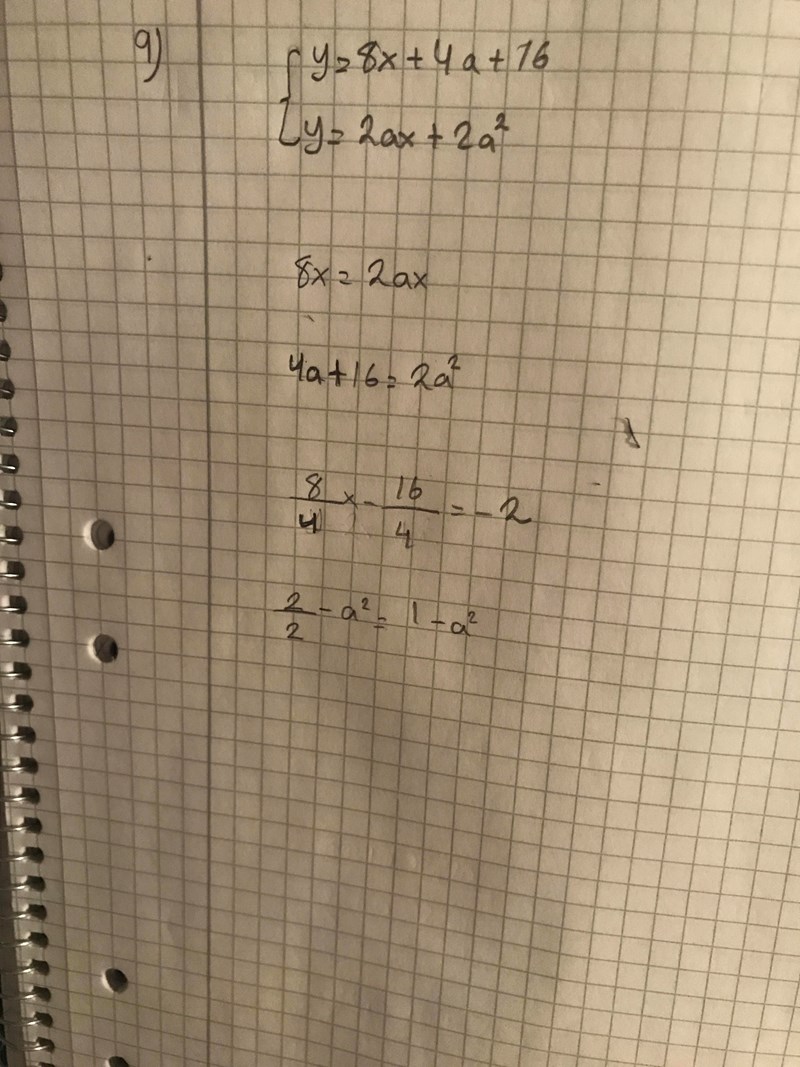 9)
y = 8x + 4a + 16
y = 2ax + 2a²
8x = 2ax
4a + 16 = 2a²
8/4 x - 16/4 = -2
2/2 - a² = 1 - a²